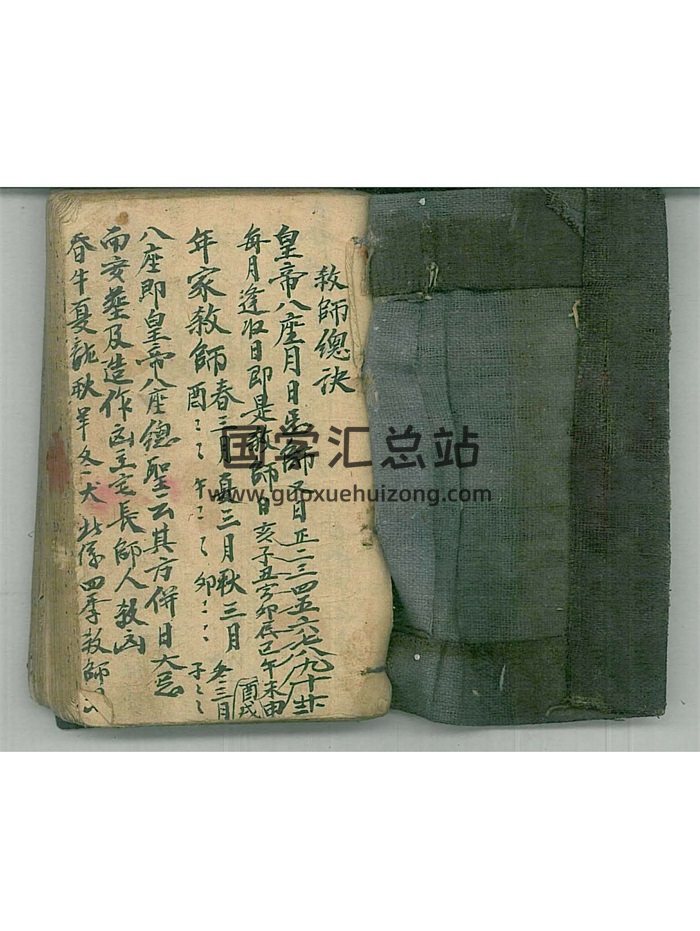 教師總訣
皇帝八座月日 師 日 正二三四五六七八九十
每月逢收日即是 師日 亥子丑寅卯辰巳午未申酉戌
年家教師 春三月夏三月秋三月冬三月
酉 午 卯 子
八座即皇帝八座總聖云其方併日大忌
而安葬及造作凶主宅長師人教凶
春牛夏龍秋羊冬犬 此係四季教師
国学汇总站
www.guoxuehuizong.com